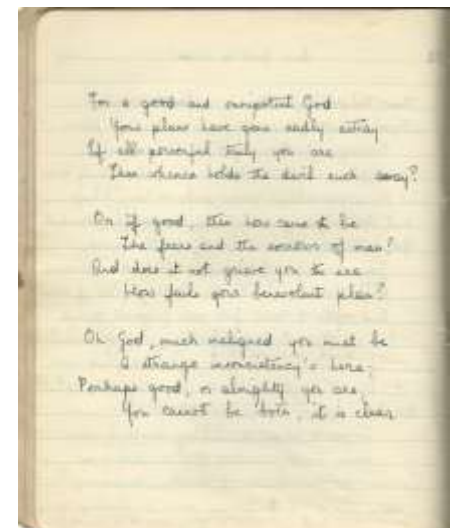 For a good and omnipotent God
Your plans have gone sadly astray
If all powerful truly you are
Then whence holds the devil such sway?
Or if good, then how came to be
The fears and the sorrows of man?
And does it not grieve you to see
How fails your benevolent plan?
Oh God, much maligned you must be
A strange inconsistency's here;
Perhaps good, or almighty you are,
You cannot be both, it is clear